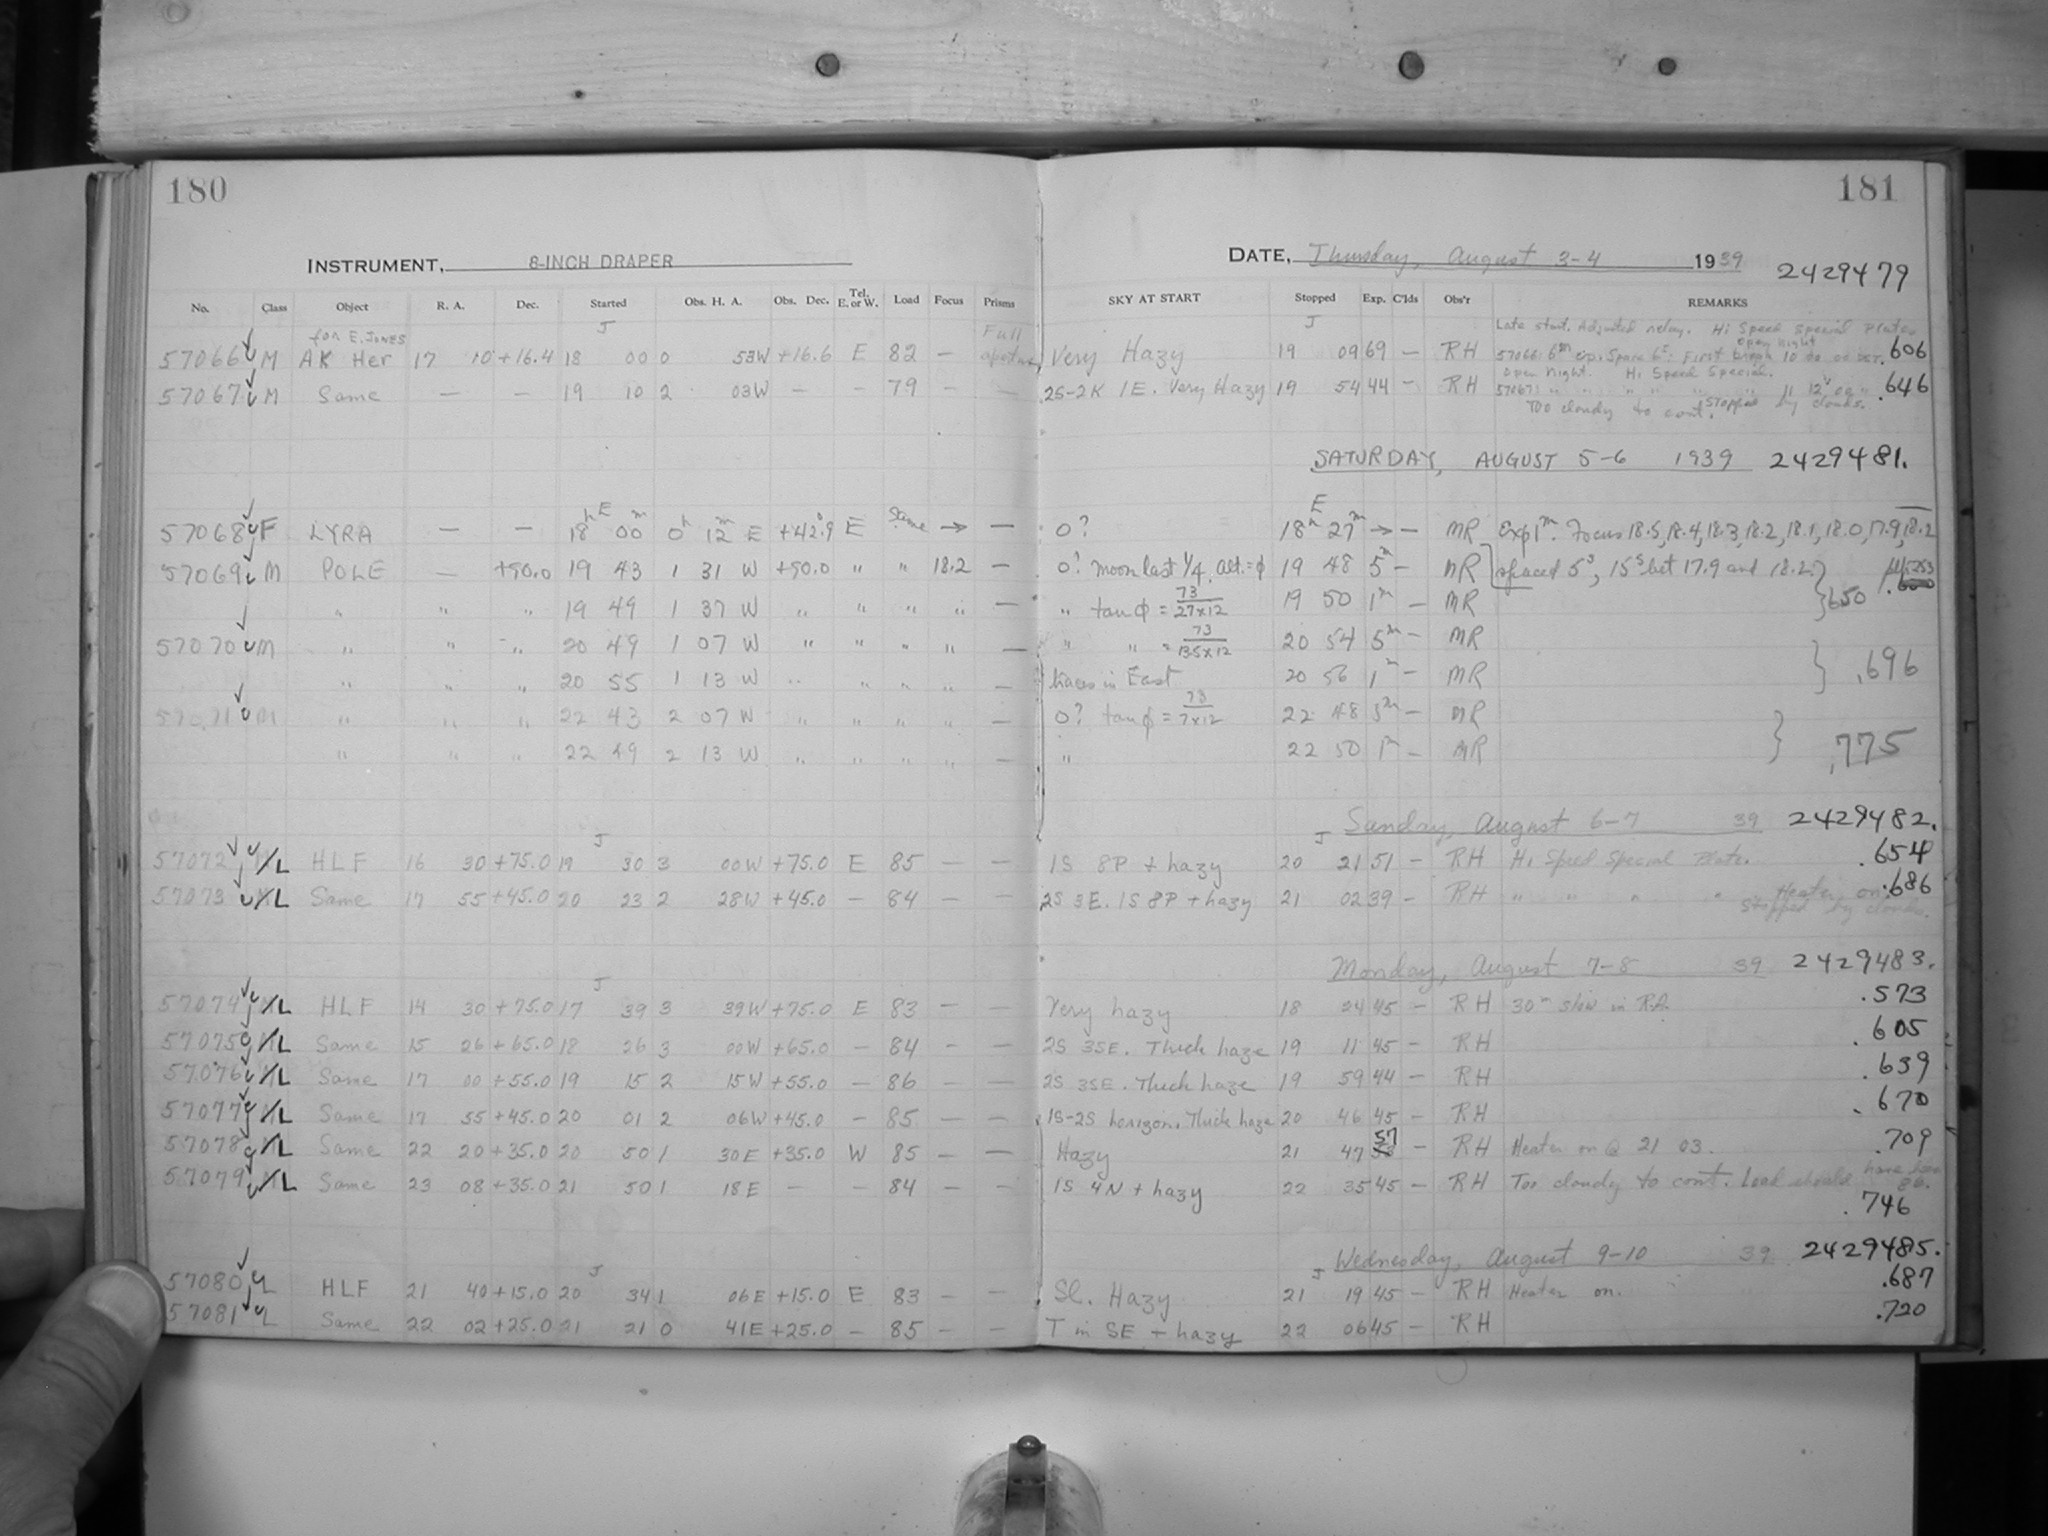 180
181
INSTRUMENT, 8-INCH DRAPER
DATE, Thursday, August 3-4 1939 2429479
No. Class Object R. A. Dec. Started Obs. H. A. Obs. Dec. Tel. E. or W. Load Focus Prisms SKY AT START Stopped Exp. C'lds Obs'r REMARKS
for E. JONES J Full J Late start. Adjusted relay. Hi Speed Special Plates
57066 M AK Her 17 10 +16.4 18 00 0 53W +16.6 E 82 — Very Hazy 19 09 69 — RH .606
open night. Hi Speed Special.
57067 M Same — — 19 10 2 03W — — 79 — 2S-2K 1E. Very Hazy 19 54 44 — RH .646
Too cloudy to cont. Stopped by clouds.
SATURDAY, AUGUST 5-6 1939 2429481.
57068 F LYRA — — 18h E 00m 0h 12m E +42.9 E Same → — 0? E 18h 27m → — MR Exp 1m. Focus 18.5, 18.4, 18.3, 18.2, 18.1, 18.0, 17.9, 18.2
57069 M POLE — +90.0 19 43 1 31 W +90.0 " " 18.2 — 0? moon last 1/4. alt.=ϕ 19 48 5m — MR spaced 5s, 15s bet 17.9 and 18.2
" " " 19 49 1 37 W " " " " — " tan ϕ = 73/27x12 19 50 1m — MR .650
57070 M " " " 20 49 1 07 W " " " " — " " = 73/13.5x12 20 54 5m — MR
" " " 20 55 1 13 W " " " " — haze in East 20 56 1m — MR .696
57071 M " " " 22 43 2 07 W " " " " — 0? tan ϕ = 73/7x12 22 48 5m — MR
" " " 22 49 2 13 W " " " " — " 22 50 1m — MR .775
Sunday, August 6-7 39 2429482.
57072 L HLF 16 30 +75.0 J 19 30 3 00W +75.0 E 85 — — 1S 8P + hazy J 20 21 51 — RH Hi Speed Special Plate. .654
57073 L Same 17 55 +45.0 20 23 2 28W +45.0 — 84 — — 2S 3E. 1S 8P + hazy 21 02 39 — RH " " " " Heater on. .686
Stopped by clouds.
Monday, August 7-8 39 2429483.
57074 L HLF 14 30 +75.0 J 17 39 3 39W +75.0 E 83 — — Very hazy 18 24 45 — RH 30m slow in R.A. .573
57075 L Same 15 26 +65.0 18 26 3 00W +65.0 — 84 — — 2S 3SE. Thick haze 19 11 45 — RH .605
57076 L Same 17 00 +55.0 19 15 2 15W +55.0 — 86 — — 2S 3SE. Thick haze 19 59 44 — RH .639
57077 L Same 17 55 +45.0 20 01 2 06W +45.0 — 85 — — 1S-2S horizon. Thick haze 20 46 45 — RH .670
57078 L Same 22 20 +35.0 20 50 1 30E +35.0 W 85 — — Hazy 21 47 57 — RH Heater on @ 21 03. .709
57079 L Same 23 08 +35.0 21 50 1 18E — — 84 — — 1S 4N + hazy 22 35 45 — RH Too cloudy to cont. Load should have been 86.
.746
Wednesday, August 9-10 39 2429485.
57080 L HLF 21 40 +15.0 J 20 34 1 06E +15.0 E 83 — — Sl. Hazy J 21 19 45 — RH Heater on. .687
57081 L Same 22 02 +25.0 21 21 0 41E +25.0 — 85 — — T in SE + hazy 22 06 45 — RH .720